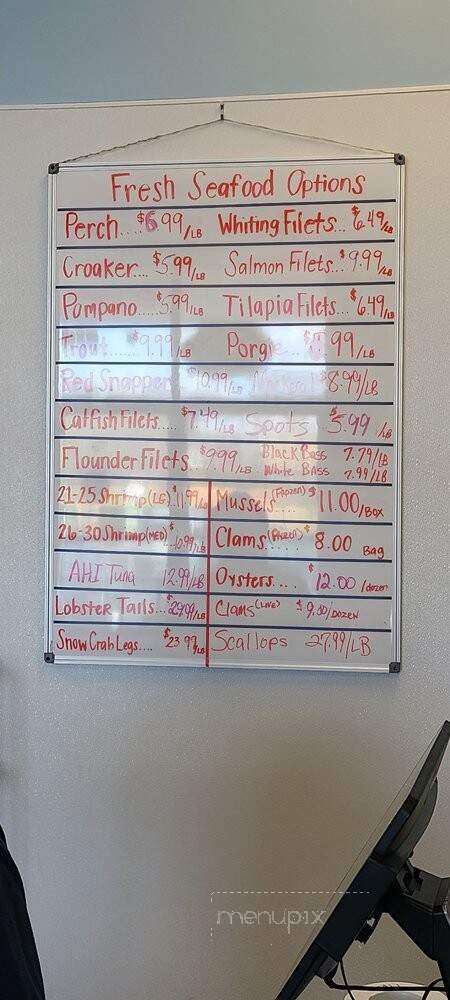 Fresh Seafood Options
Perch....$6.99/LB Whiting Filets... $6.49/LB
Croaker... $5.99/LB Salmon Filets... $9.99/LB
Pompano.....$5.99/LB Tilapia Filets... $6.49/LB
Trout......$9.99/LB Porgie... 99/LB
Red Snapper $10.99/LB $8.99/LB
Catfish Filets.... $7.49/LB Spots $5.99/LB
Flounder Filets... $9.99/LB Black Bass 7.79/LB
White Bass 7.99/LB
21-25 Shrimp(LG) $11.99/LB Mussels(Frozen) $11.00/Box
26-30 Shrimp(MED) $10.99/LB Clams(Frozen) $8.00 Bag
AHI Tuna 12.99/LB Oysters.... $12.00/dozen
Lobster Tails... $29.99/LB Clams(LIVE) $9.50/DOZEN
Snow Crab Legs.... $23.99/LB Scallops 27.99/LB
menupix